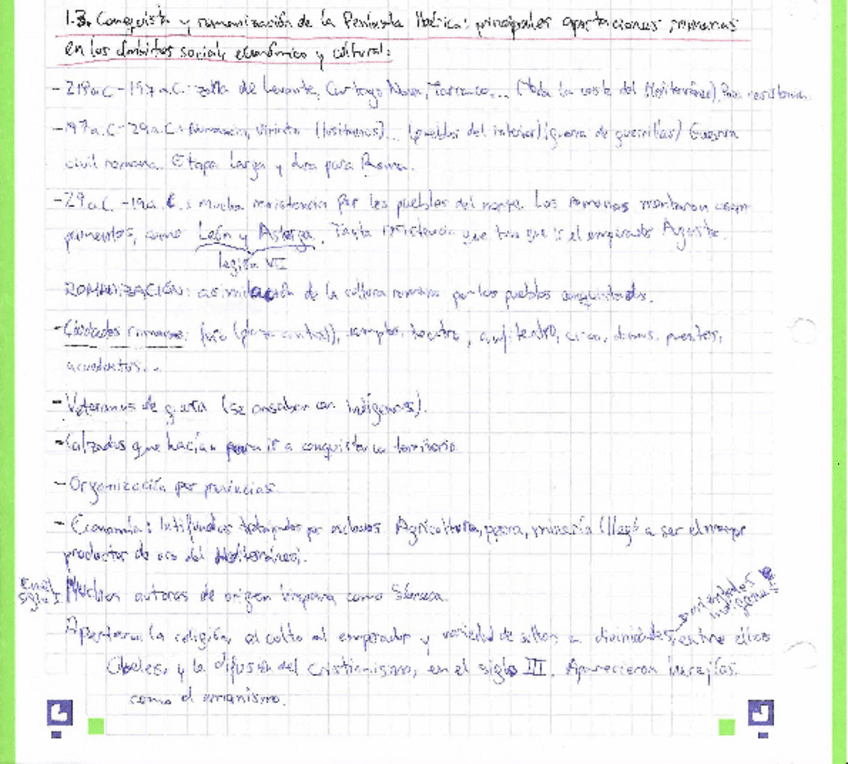 1.3. Conquista y romanización de la Península Ibérica: principales aportaciones romanas
en los ámbitos social, económico y cultural:
- 218 a.C - 197 a.C: zona de Levante, Cartago Nova, Tarraco... (toda la costa del Mediterráneo). Poca resistencia.
- 197 a.C - 29 a.C: Numancia, Viriato (lusitanos)... (pueblos del interior) (guerra de guerrillas) Guerra
civil romana. Etapa larga y dura para Roma.
- 29 a.C - 19 a.C.: mucha resistencia por los pueblos del norte. Los romanos montaron cam
pamentos, como León y Astorga. Tanta resistencia que tuvo que ir el emperador Augusto.
legión VI
ROMANIZACIÓN: asimilación de la cultura romana por los pueblos conquistados.
- Ciudades romanas: foro (plaza central), templos, teatro, anfiteatro, circo, domus, puentes,
acueductos...
- Veteranos de guerra (se casaban con indígenas).
- Calzadas que hacían para ir a conquistar un territorio
- Organización por provincias
- Economía: latifundios trabajados por esclavos Agricultura, pesca, minería (llegó a ser el mayor
productor de oro del Mediterráneo).
En el siglo I
Muchos autores de origen hispano como Séneca.
asimilados indígenas
Aportaron la religión, el culto al emperador y variedad de cultos a divinidades, entre ellos
Cibeles, y la difusión del cristianismo, en el siglo III. Aparecieron herejías
como el arrianismo.